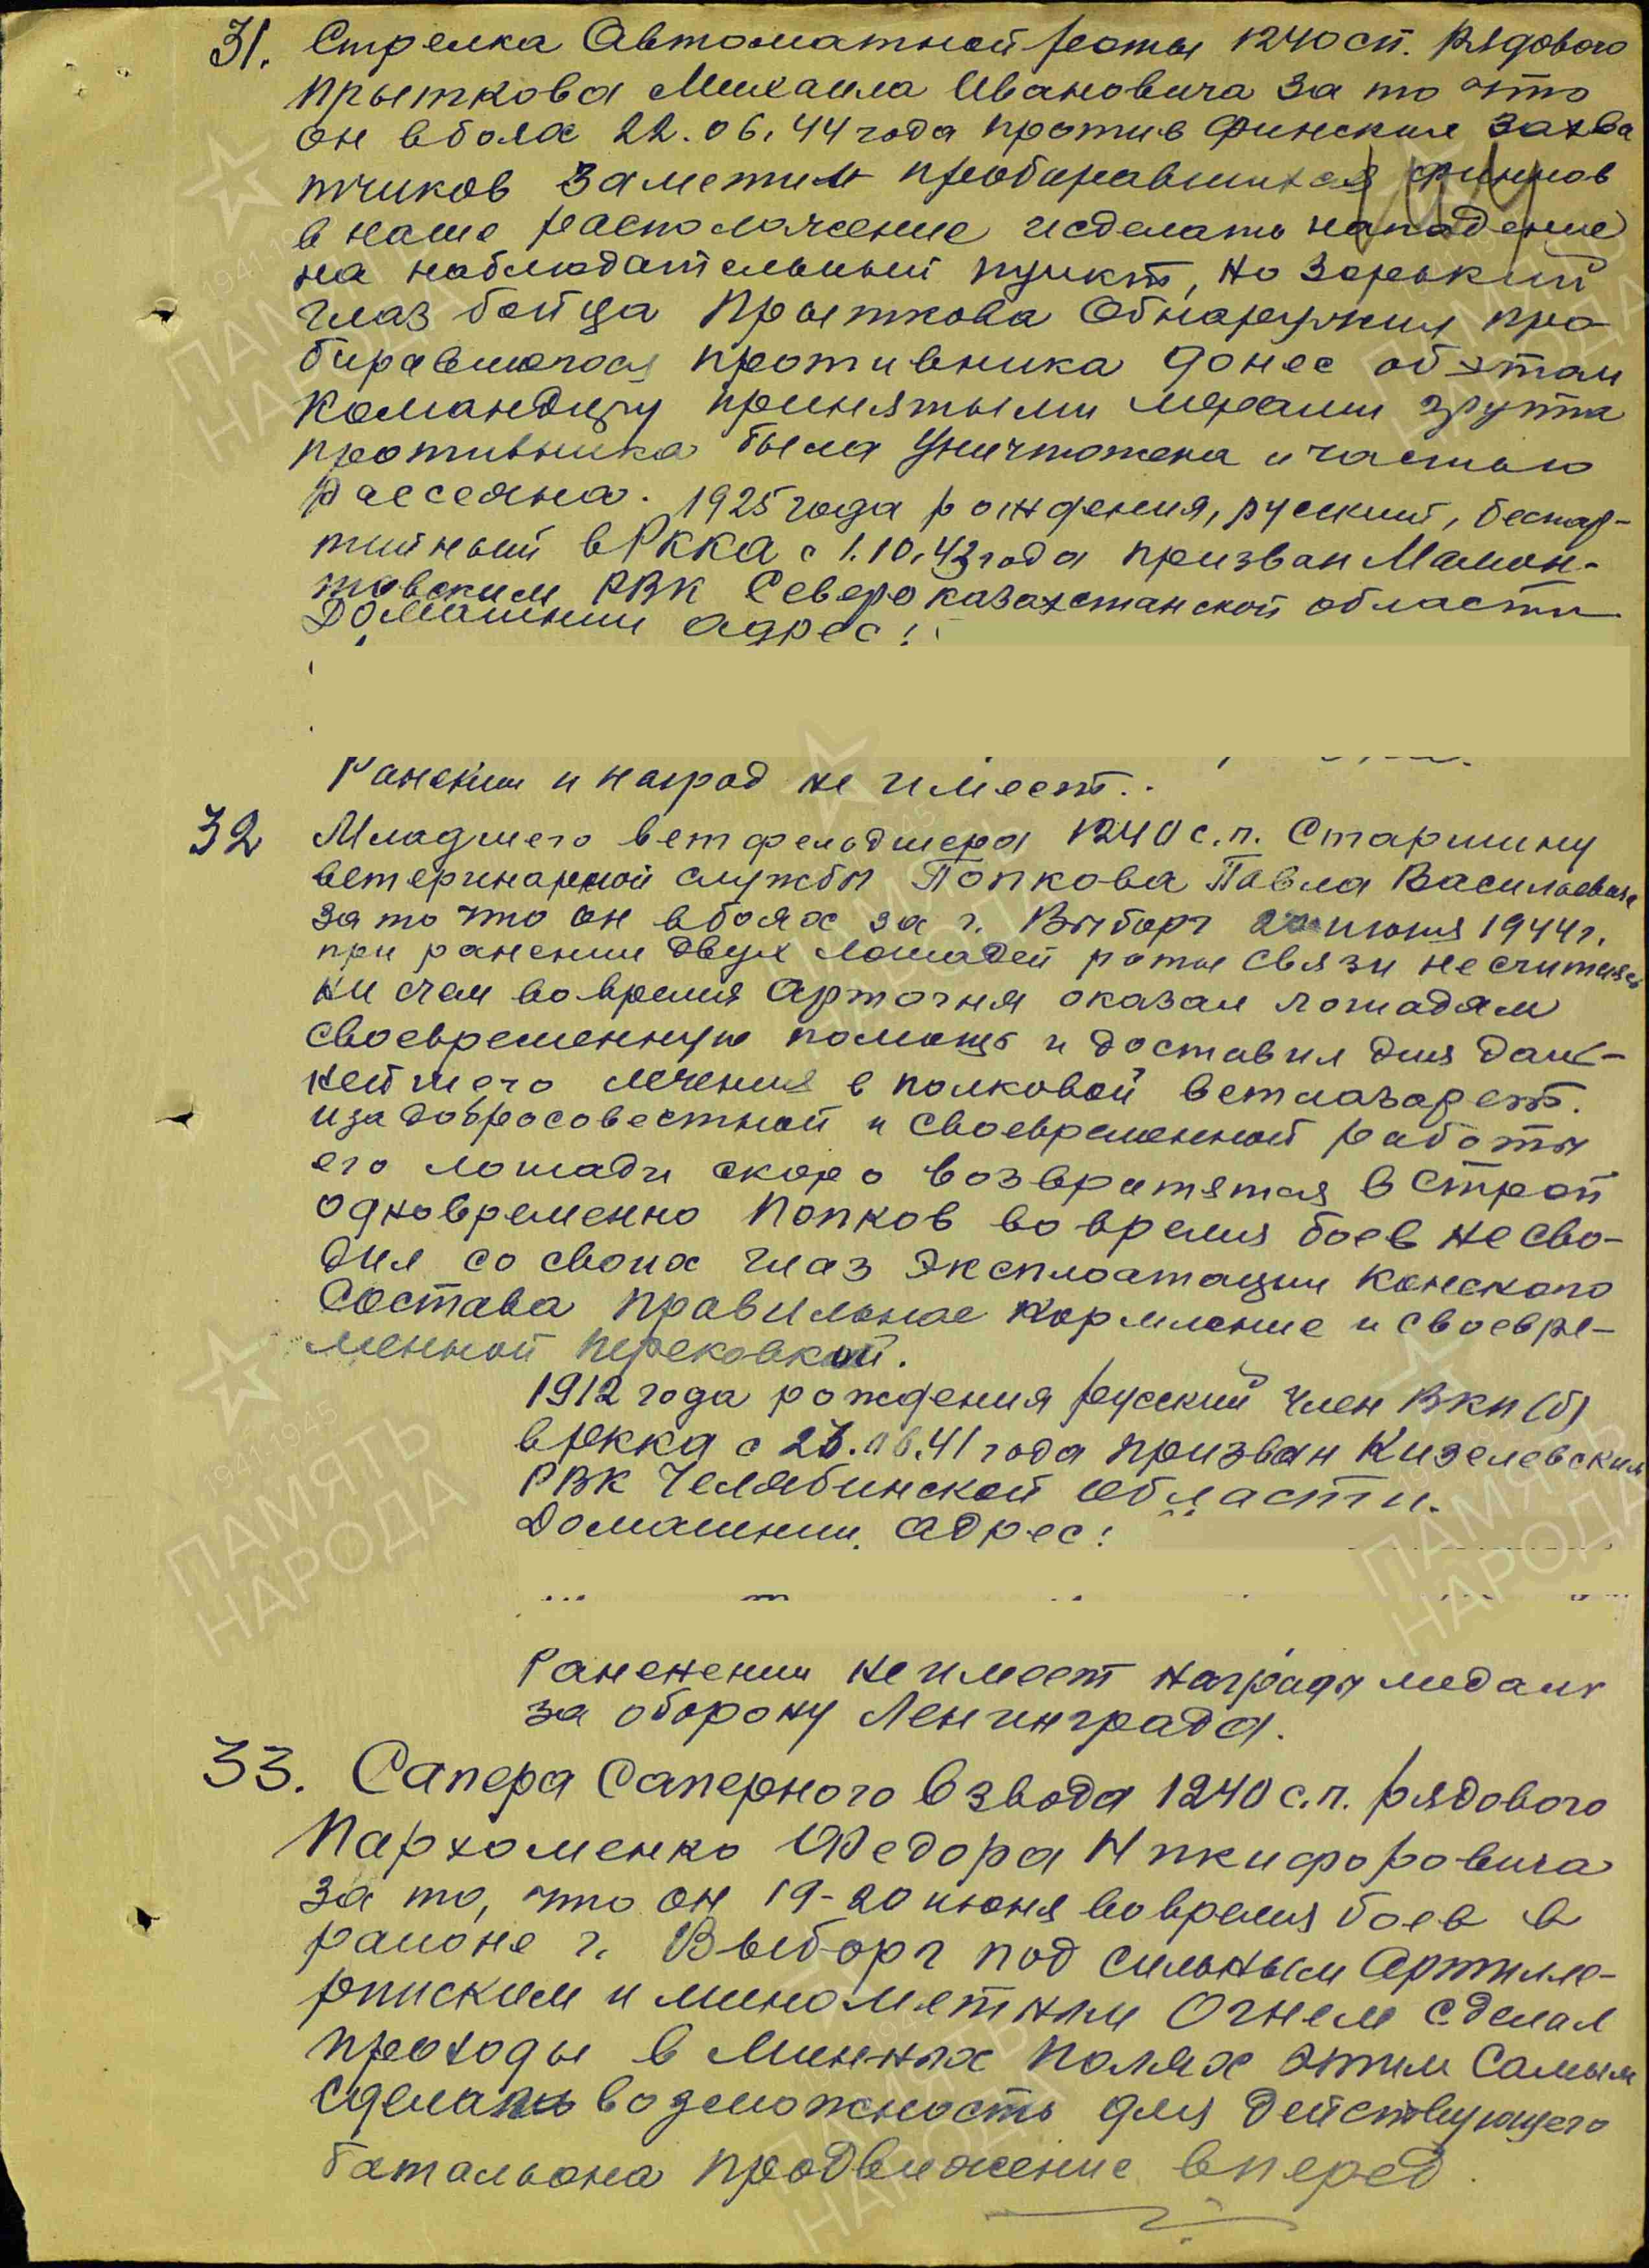 31. Стрелка Автоматной роты 1240 сп. рядового
Прыткова Михаила Ивановича за то что
он в боях 22.06.44 года против финских захва
тчиков заметил пробиравшихся финнов
в наше расположение и сделать нападение
на наблюдательный пункт, но зоркий
глаз бойца Прыткова обнаружил про-
биравшегося противника донес об этом
командиру принятыми мерами группа
противника была уничтожена и частью
рассеяна. 1925 года рождения, русский, беспар-
тийный в РККА с 1.10.43 года призван Мамон-
товским РВК Северо казахстанской области
Домашний адрес:
Ранений и наград не имеет..
32 Младшего ветфельдшера 1240 с.п. Старшину
ветеринарной службы Попкова Павла Васильевича
за то что он в боях за г. Выборг 20 июня 1944 г.
при ранении двух лошадей роты связи не считаясь
ни счем во время Артогня оказал лошадям
своевременную помощь и доставил для даль-
нейшего лечения в полковой ветлазарет.
и за добросовестной и своевременной работы
его лошади скоро возвратятся в строй
одновременно Попков во время боев не сво-
дил со своих глаз эксплоатации конского
состава правильное кормление и своевре-
менной перековкой.
1912 года рождения русский член ВКП(б)
в РККА с 23.06.41 года призван Кизелевским
РВК Челябинской области.
Домашний адрес:
Раненении не имеет награды медаль
за оборону Ленинграда.
33. Сапера Саперного взвода 1240 с.п. рядового
Пархоменко Федора Никифоровича
за то, что он 19-20 июня во время боев в
районе г. Выборг под сильным Артилле-
рииским и минометным огнем сделал
проходы в минных полях этим самым
сделана возможность для действующего
батальона продвижение вперед.
ПАМЯТЬ
НАРОДА
1941 1945